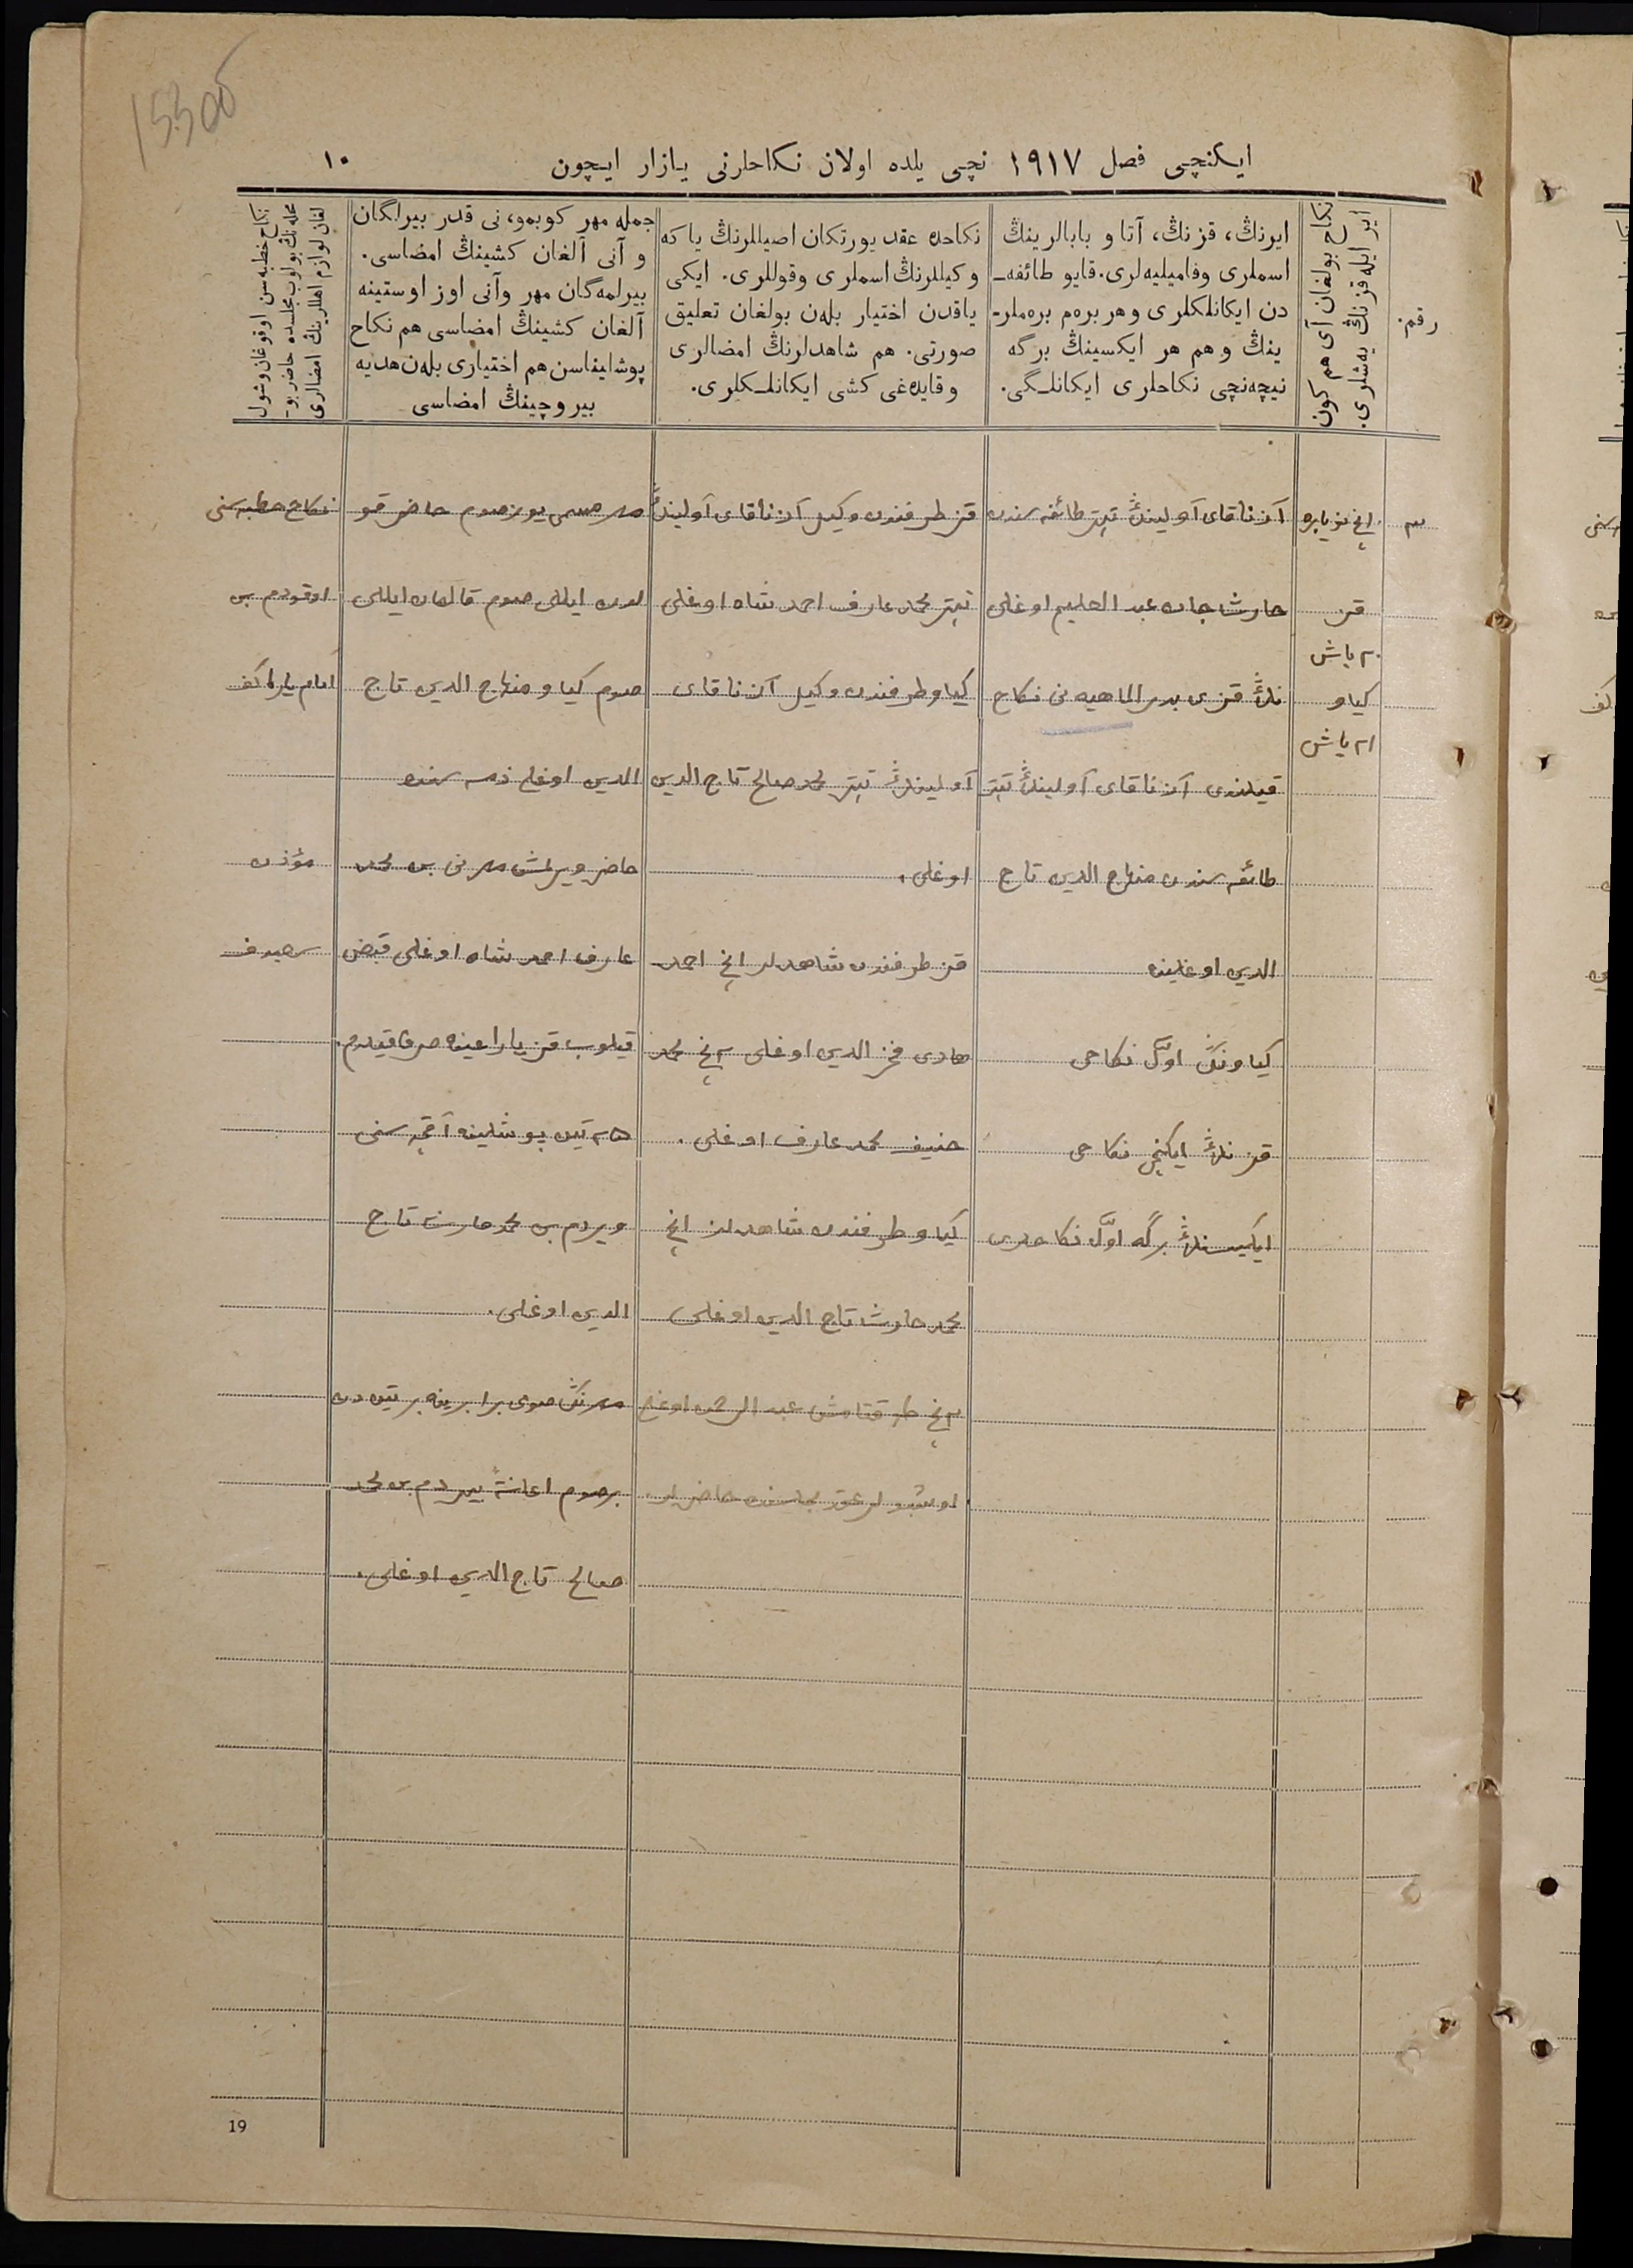 15300
ایکنچی فصل ۱۹۱۷ نچی یلده اولان نکاحلرنی یازار ایچون
۱۰
رقم.
نکاح بولغان آی هم کون
ایر ایله قزنڭ یه‌شلری.
ایرنڭ، قزنڭ، آتا و بابالرینڭ
اسملری وفامیلیه‌لری. قایو طائفه‌ـ
دن ایکانلکلری وهر بره‌م بره‌ملرـ
ینڭ و هم هر ایکسینڭ برگه
نیچه‌نچی نکاحلری ایکانلـگی.
نکاحده عقد یورتکان اصیللرنڭ یا که
وکیللرنڭ اسملری وقوللری. ایکی
یاقدن اختیار بله‌ن بولغان تعلیق
صورتی. هم شاهدلرنڭ امضالری
وقایده‌غی کشی ایکانلـکلری.
جمله مهر کوبمو، نی قدر بیرلگان
و آنی آلغان کشینڭ امضاسی.
بیرلمه‌گان مهر وآنی اوز اوستینه
آلغان کشینڭ امضاسی هم نکاح
پوشلینفاسن هم اختیاری بله‌ن هدیه
بیروچینڭ امضاسی
نکاح خطبه‌سن اوقوغان وشول
محله‌نڭ بولوب مجلسده حاضر بوـ
لغان لوازم اهللرینڭ امضالری
۳
۱نچی نویابره
قز
۲۰ یاش
کیاو
۲۱ یاش
آن ناقای آولینڭ تیبتر طائفه سندن
حارث جان عبد الحلیم اوغلی
نڭ قزی بدر الماهیه نی نکاح
قیلندی آن ناقای آولینڭ تیبتر
طائفه سندن منهاج الدین تاج
الدین اوغلینه
کیاونڭ اوّل نکاحی
قزنڭ ایکنچی نکاحی
ایکیسنڭ برگه اوّل نکاحلری
قز طرفندن وکیل آن ناقای آولینڭ
تیبتر محمد عارف احمد شاه اوغلی
کیاو طرفندن وکیل آن ناقای
آولینڭ تیبتر محمد صالح تاج الدین
اوغلی.
قز طرفندن شاهدلر ۱نچی احمد
هادی فخر الدین اوغلی ۲نچی محمد
حنیف محمد عارف اوغلی.
کیاو طرفندن شاهدلر ۱نچی
محمد حارث تاج الدین اوغلی
۲نچی عبد الرحمن اوغلی
اوشبولر عقد مجلسنده حاضرلر.
مهر مسمی یوز صوم حاضر قو
لدن ایللی صوم قالغان ایللی
صوم کیاو منهاج الدین تاج
الدین اوغلی ذمه سنده
حاضر ویرلمش مهرنی بن محمد
عارف احمد شاه اوغلی قبض
قیلوب قز یاراغینه صرف قیلدم.
۲۵ تین پوشلینه آقچه سنی
ویردم بن محمد حارث تاج
الدین اوغلی.
مهرنڭ صومی برابرینه بر تین دن
بر صوم اعانة بیردم بن محمد
صالح تاج الدین اوغلی.
نکاح خطبه سنی
اوقودم بن
امام
مؤذن
19